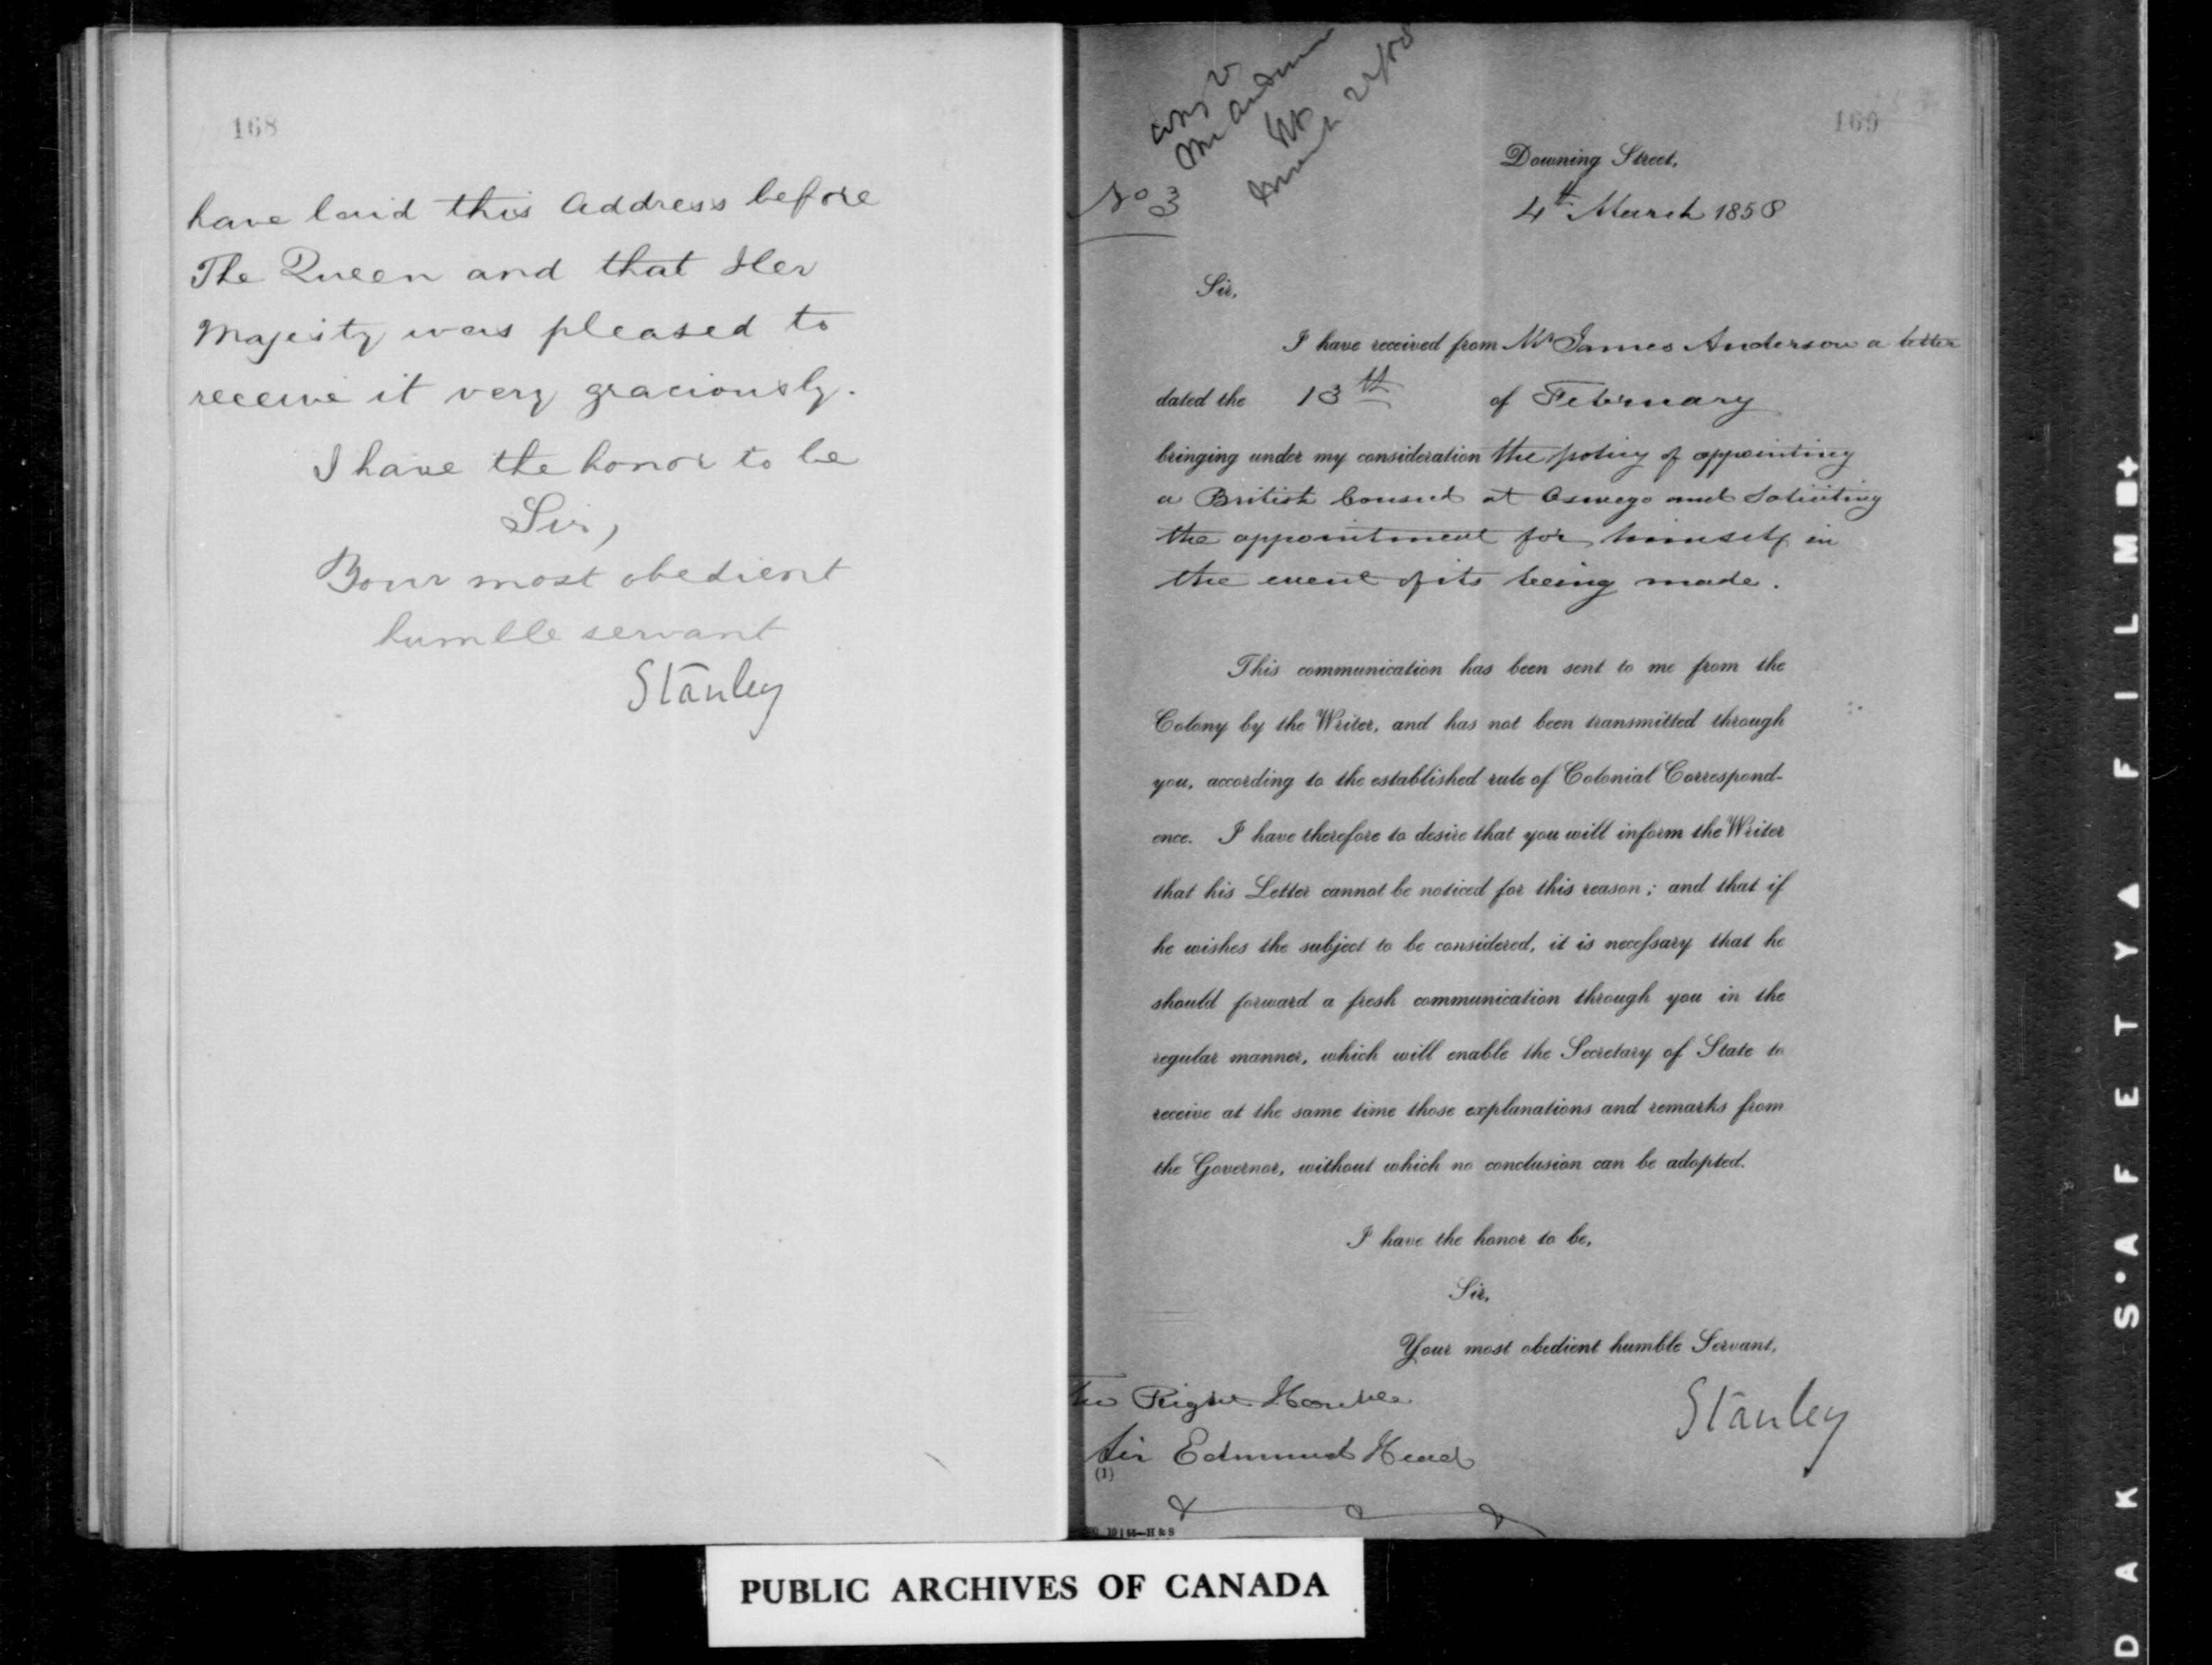 168
have laid this Address before
The Queen and that Her
Majesty was pleased to
receive it very graciously.
I have the honor to be
Sir,
Your most obedient
humble servant
Stanley
169
No 3
Mr Anderson
Downing Street,
4th March 1858
Sir,
I have received from Mr James Anderson a letter
dated the 13th of February
bringing under my consideration the policy of appointing
a British Consul at Oswego and soliciting
the appointment for himself in
the event of its being made.
This communication has been sent to me from the
Colony by the Writer, and has not been transmitted through
you, according to the established rule of Colonial Correspond-
ence. I have therefore to desire that you will inform the Writer
that his Letter cannot be noticed for this reason; and that if
he wishes the subject to be considered, it is necessary that he
should forward a fresh communication through you in the
regular manner, which will enable the Secretary of State to
receive at the same time those explanations and remarks from
the Governor, without which no conclusion can be adopted.
I have the honor to be,
Sir,
Your most obedient humble Servant,
Stanley
The Right Honble
Sir Edmund Head
(1)
H & S
PUBLIC ARCHIVES OF CANADA
D A K S·A F E T Y ▲ F I L M